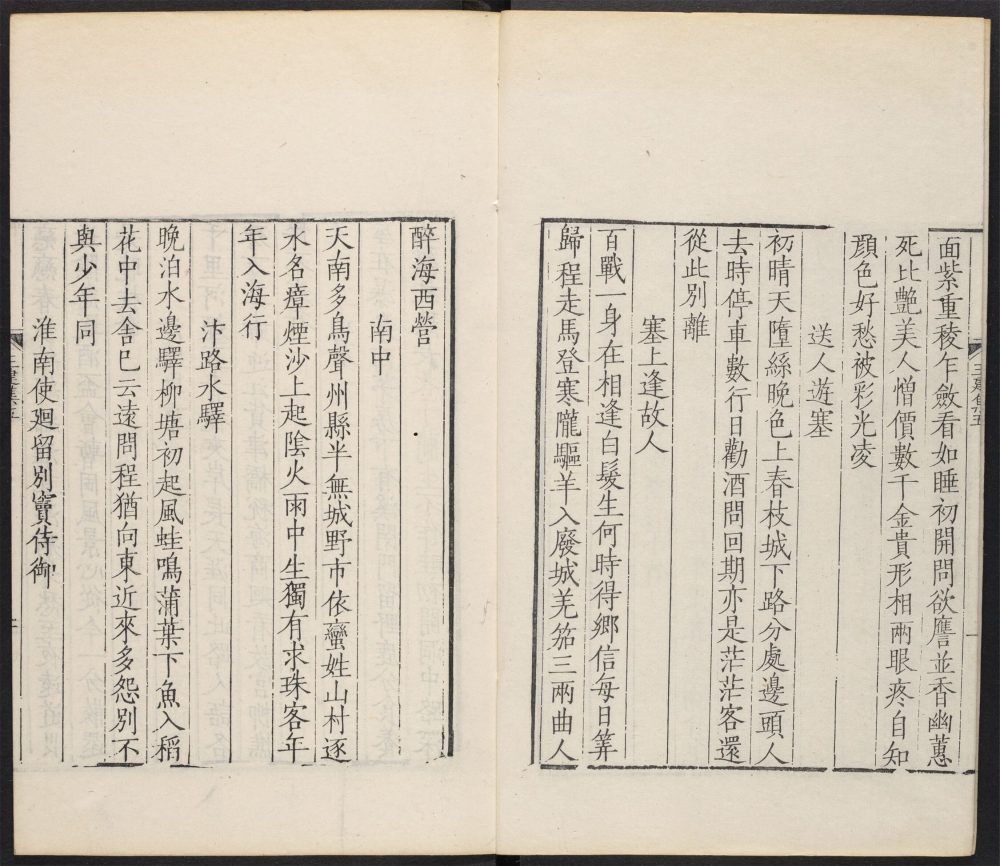 面紫重稜乍斂看如睡初開問欲應並香幽蕙
死比艷美人憎價數千金貴形相兩眼疼自知
顔色好愁被彩光凌
送人遊塞
初晴天墮絲晚色上春枝城下路分處邊頭人
去時停車數行日勸酒問回期亦是茫茫客還
從此別離
塞上逢故人
百戰一身在相逢白髮生何時得鄉信每日筭
歸程走馬登寒隴驅羊入廢城羌笳三兩曲人
醉海西營
南中
天南多鳥聲州縣半無城野市依蠻姓山村逐
水名瘴煙沙上起陰火雨中生獨有求珠客年
年入海行
汴路水驛
晚泊水邊驛柳塘初起風蛙鳴蒲葉下魚入稻
花中去舍已云遠問程猶向東近來多怨別不
與少年同
淮南使廻留別竇侍御